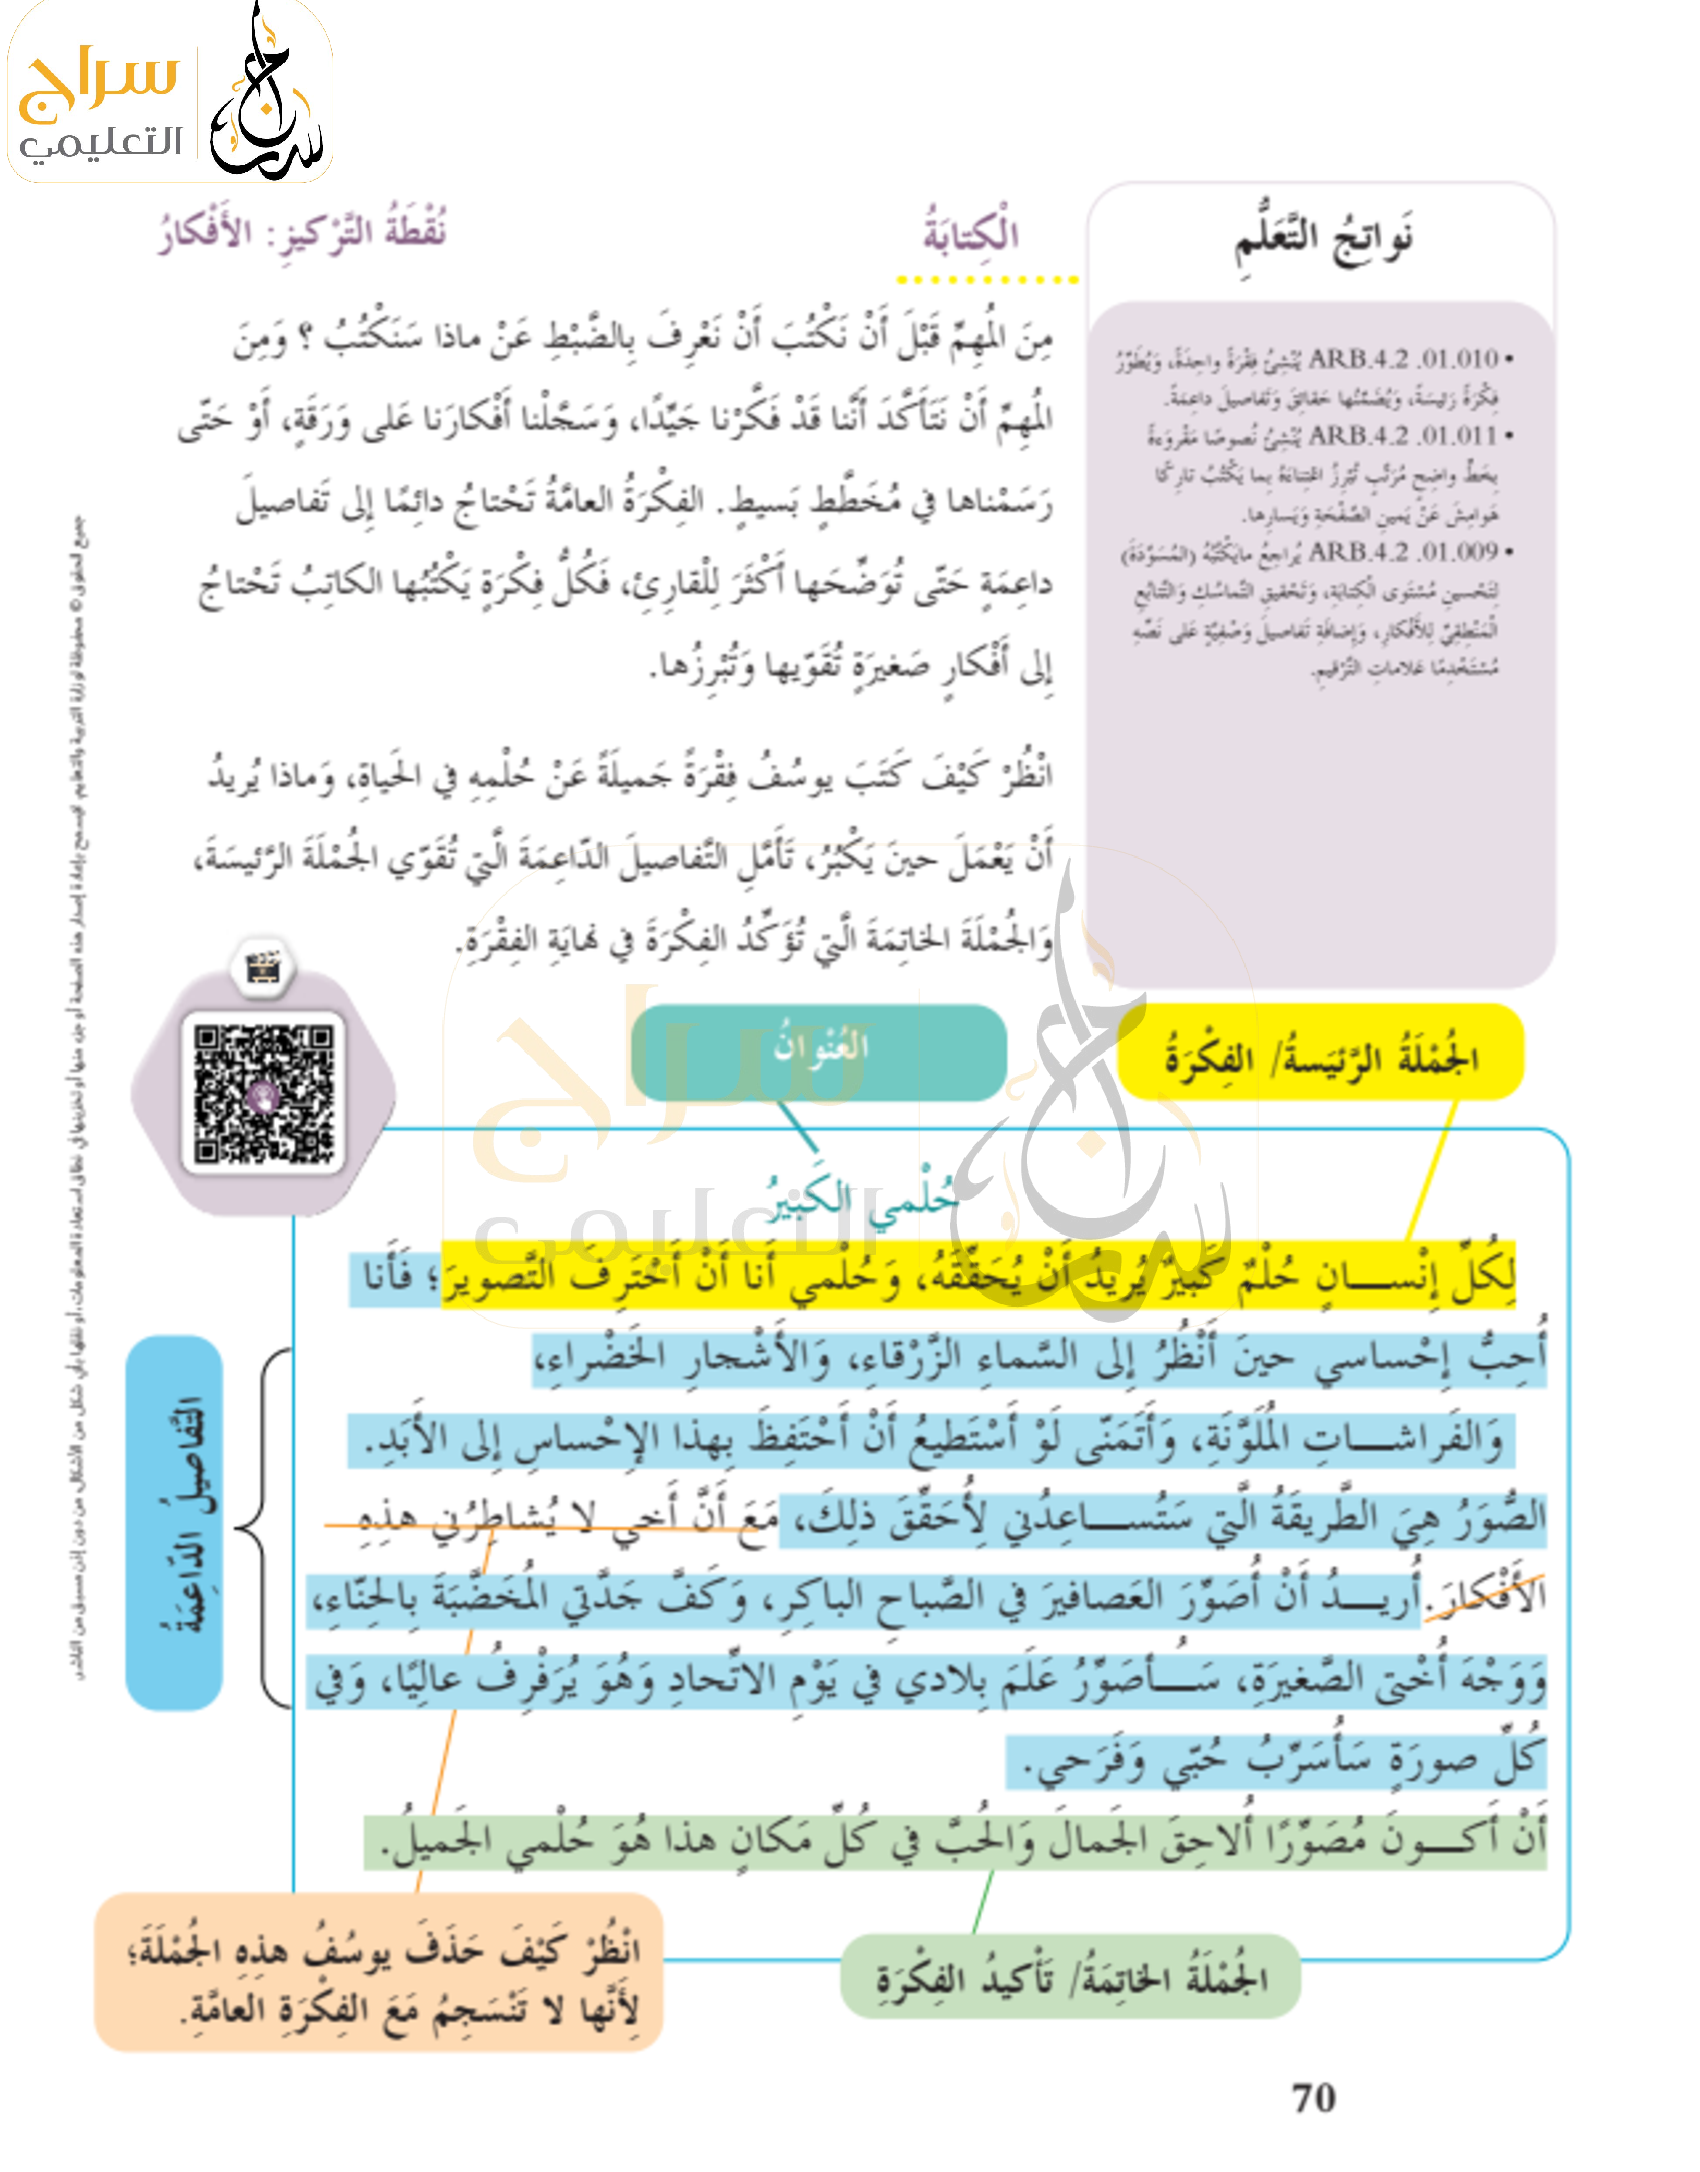 سراج
التعليمي
نَواتِجُ التَّعَلُّمِ
• ARB.4.2 .01.010 يُنْشِئُ فِقْرَةً واحِدَةً، وَيُطَوِّرُ
فِكْرَةً رَئيسَةً، وَيُضَمِّنُها حَقائِقَ وَتَفاصيلَ داعِمَةً.
• ARB.4.2 .01.011 يُنْشِئُ نُصوصًا مَقْروءَةً
بِخَطٍّ واضِحٍ مُرَتَّبٍ تُبْرِزُ اعْتِناءَهُ بِما يَكْتُبُ تارِكًا
هَوامِشَ عَنْ يَمينِ الصَّفْحَةِ وَيَسارِها.
• ARB.4.2 .01.009 يُراجِعُ مايَكْتُبُهُ (المُسَوَّدَةَ)
لِتَحْسينِ مُسْتَوى الْكِتابَةِ، وَتَحْقيقِ التَّماسُكِ وَالتَّتابُعِ
الْمَنْطِقِيِّ لِلأَفْكارِ، وَإِضافَةِ تَفاصيلَ وَصْفِيَّةٍ عَلى نَصِّهِ
مُسْتَخْدِمًا عَلاماتِ التَّرْقيمِ.
الْكِتابَةُ
نُقْطَةُ التَّرْكيزِ: الأَفْكارُ
مِنَ المُهِمِّ قَبْلَ أَنْ نَكْتُبَ أَنْ نَعْرِفَ بِالضَّبْطِ عَنْ ماذا سَنَكْتُبُ ؟ وَمِنَ
المُهِمِّ أَنْ نَتَأَكَّدَ أَنَّنا قَدْ فَكَّرْنا جَيِّدًا، وَسَجَّلْنا أَفْكارَنا عَلى وَرَقَةٍ، أَوْ حَتّى
رَسَمْناها في مُخَطَّطٍ بَسيطٍ. الفِكْرَةُ العامَّةُ تَحْتاجُ دائِمًا إِلى تَفاصيلَ
داعِمَةٍ حَتّى تُوَضِّحَها أَكْثَرَ لِلْقارِئِ، فَكُلُّ فِكْرَةٍ يَكْتُبُها الكاتِبُ تَحْتاجُ
إِلى أَفْكارٍ صَغيرَةٍ تُقَوّيها وَتُبْرِزُها.
انْظُرْ كَيْفَ كَتَبَ يوسُفُ فِقْرَةً جَميلَةً عَنْ حُلْمِهِ في الحَياةِ، وَماذا يُريدُ
أَنْ يَعْمَلَ حينَ يَكْبُرُ، تَأَمَّلِ التَّفاصيلَ الدّاعِمَةَ الَّتي تُقَوّي الجُمْلَةَ الرَّئيسَةَ،
وَالجُمْلَةَ الخاتِمَةَ الَّتي تُؤَكِّدُ الفِكْرَةَ في نِهايَةِ الفِقْرَةِ.
الجُمْلَةُ الرَّئيَسةُ/ الفِكْرَةُ
العُنْوانُ
حُلْمي الكَبيرُ
لِكُلِّ إِنْسـانٍ حُلْمٌ كَبيرٌ يُريدُ أَنْ يُحَقِّقَهُ، وَحُلْمي أَنا أَنْ أَحْتَرِفَ التَّصويرَ؛ فَأَنا
أُحِبُّ إِحْساسي حينَ أَنْظُرُ إِلى السَّماءِ الزَّرْقاءِ، وَالأَشْجارِ الخَضْراءِ،
وَالفَراشـاتِ المُلَوَّنَةِ، وَأَتَمَنّى لَوْ أَسْتَطيعُ أَنْ أَحْتَفِظَ بِهذا الإِحْساسِ إِلى الأَبَدِ.
الصُّوَرُ هِيَ الطَّريقَةُ الَّتي سَتُسـاعِدُني لِأُحَقِّقَ ذلِكَ، مَعَ أَنَّ أَخي لا يُشاطِرُني هذِهِ
الأَفْكارَ. أُريـدُ أَنْ أُصَوِّرَ العَصافيرَ في الصَّباحِ الباكِرِ، وَكَفَّ جَدَّتي المُخَضَّبَةَ بِالحِنّاءِ،
وَوَجْهَ أُخْتي الصَّغيرَةِ، سَـأُصَوِّرُ عَلَمَ بِلادي في يَوْمِ الاتِّحادِ وَهُوَ يُرَفْرِفُ عالِيًا، وَفي
كُلِّ صورَةٍ سَأُسَرِّبُ حُبّي وَفَرَحي.
أَنْ أَكـونَ مُصَوِّرًا أُلاحِقَ الجَمالَ وَالحُبَّ في كُلِّ مَكانٍ هذا هُوَ حُلْمي الجَميلُ.
التَّفاصيلُ الدّاعِمَةُ
الجُمْلَةُ الخاتِمَةُ/ تَأْكيدُ الفِكْرَةِ
انْظُرْ كَيْفَ حَذَفَ يوسُفُ هذِهِ الجُمْلَةَ؛
لِأَنَّها لا تَنْسَجِمُ مَعَ الفِكْرَةِ العامَّةِ.
جميع الحقوق © محفوظة لوزارة التربية والتعليم. لايسمح بإعادة إصدار هذه الصفحة أو جزء منها أو تخزينها في نطاق استعادة المعلومات، أو نقلها بأي شكل من الأشكال من دون إذن مسبق من الناشر
70